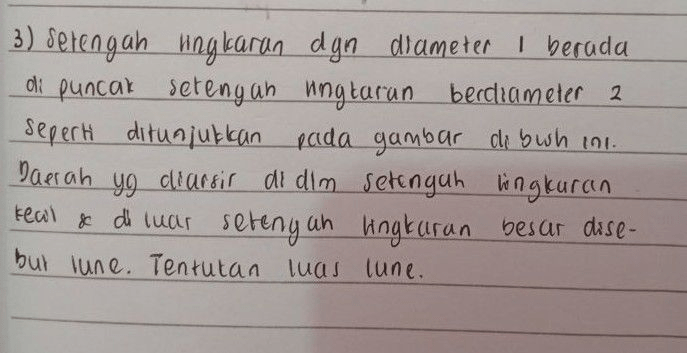 3) Setengah lingkaran dgn diameter 1 berada
di puncak setengah lingkaran berdiameter 2
seperti ditunjukkan pada gambar di bwh ini.
Daerah yg diarsir di dlm setengah lingkaran
kecil & di luar setengah lingkaran besar dise-
but lune. Tentukan luas lune.